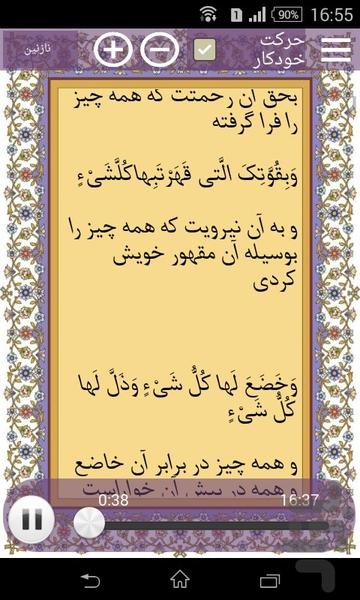 90% 16:55
حرکت
خودکار
نازنین
بحق آن رحمتت که همه چیز
را فرا گرفته
وَبِقُوَّتِکَ الَّتی قَهَرْتَ بِها کُلَّ شَیْءٍ
و به آن نیرویت که همه چیز را
بوسیله آن مقهور خویش
کردی
وَخَضَعَ لَها کُلُّ شَیْءٍ وَذَلَّ لَها
کُلُّ شَیْءٍ
و همه چیز در برابر آن خاضع
و همه در پیش آن خوار است
0:38 16:37